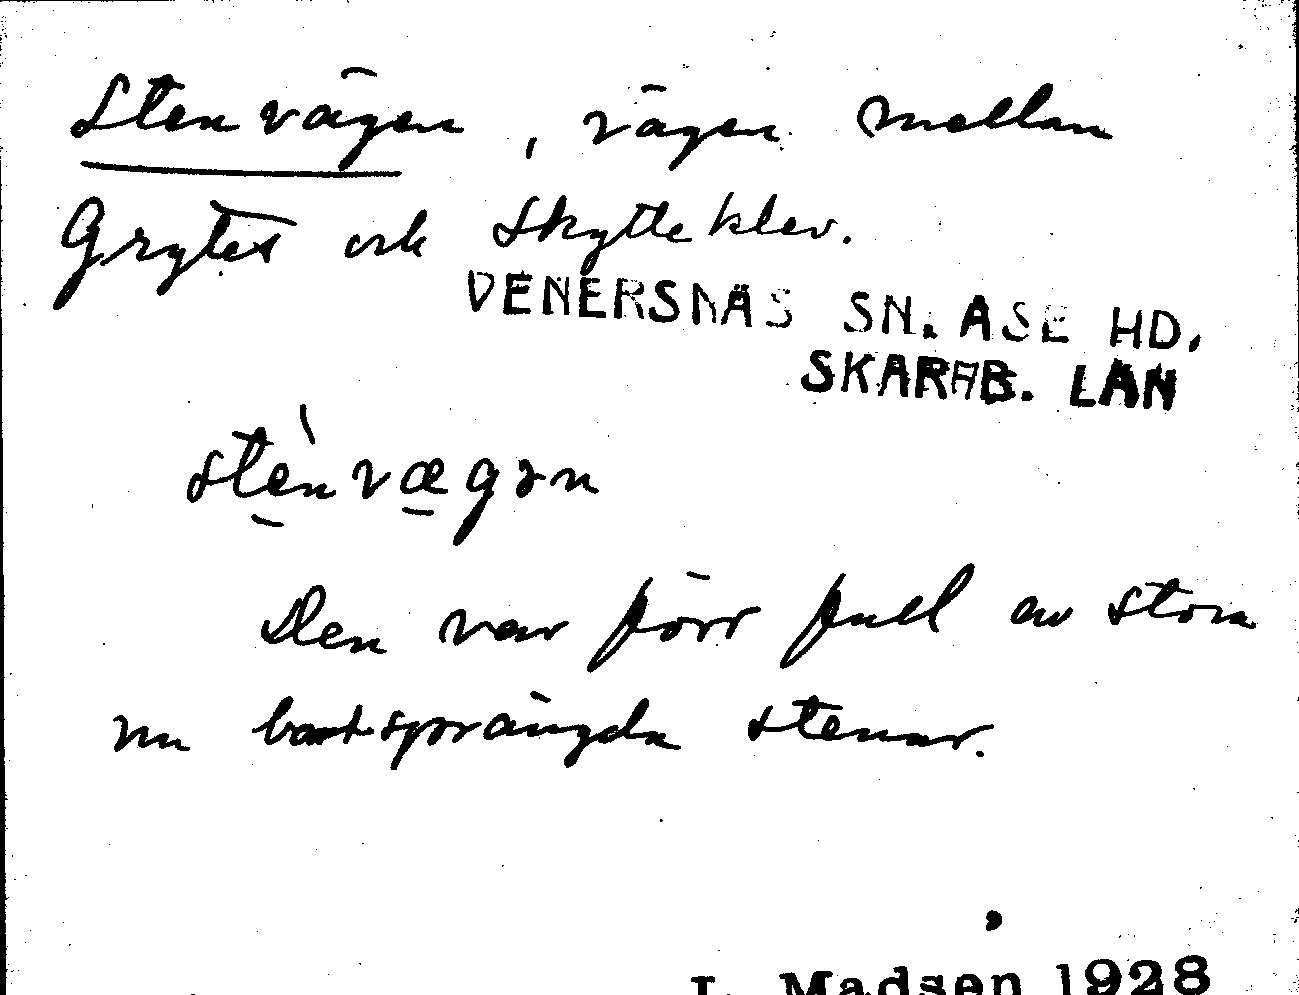 Stenvägen, vägen mellan
Grytet och Skytteklev.
VENERSNÄS SN. ÅSE HD.
SKARAB. LÄN
stènvægən
Den var förr full av stora
nu bortsprängda stenar.
L. Madsen 1928